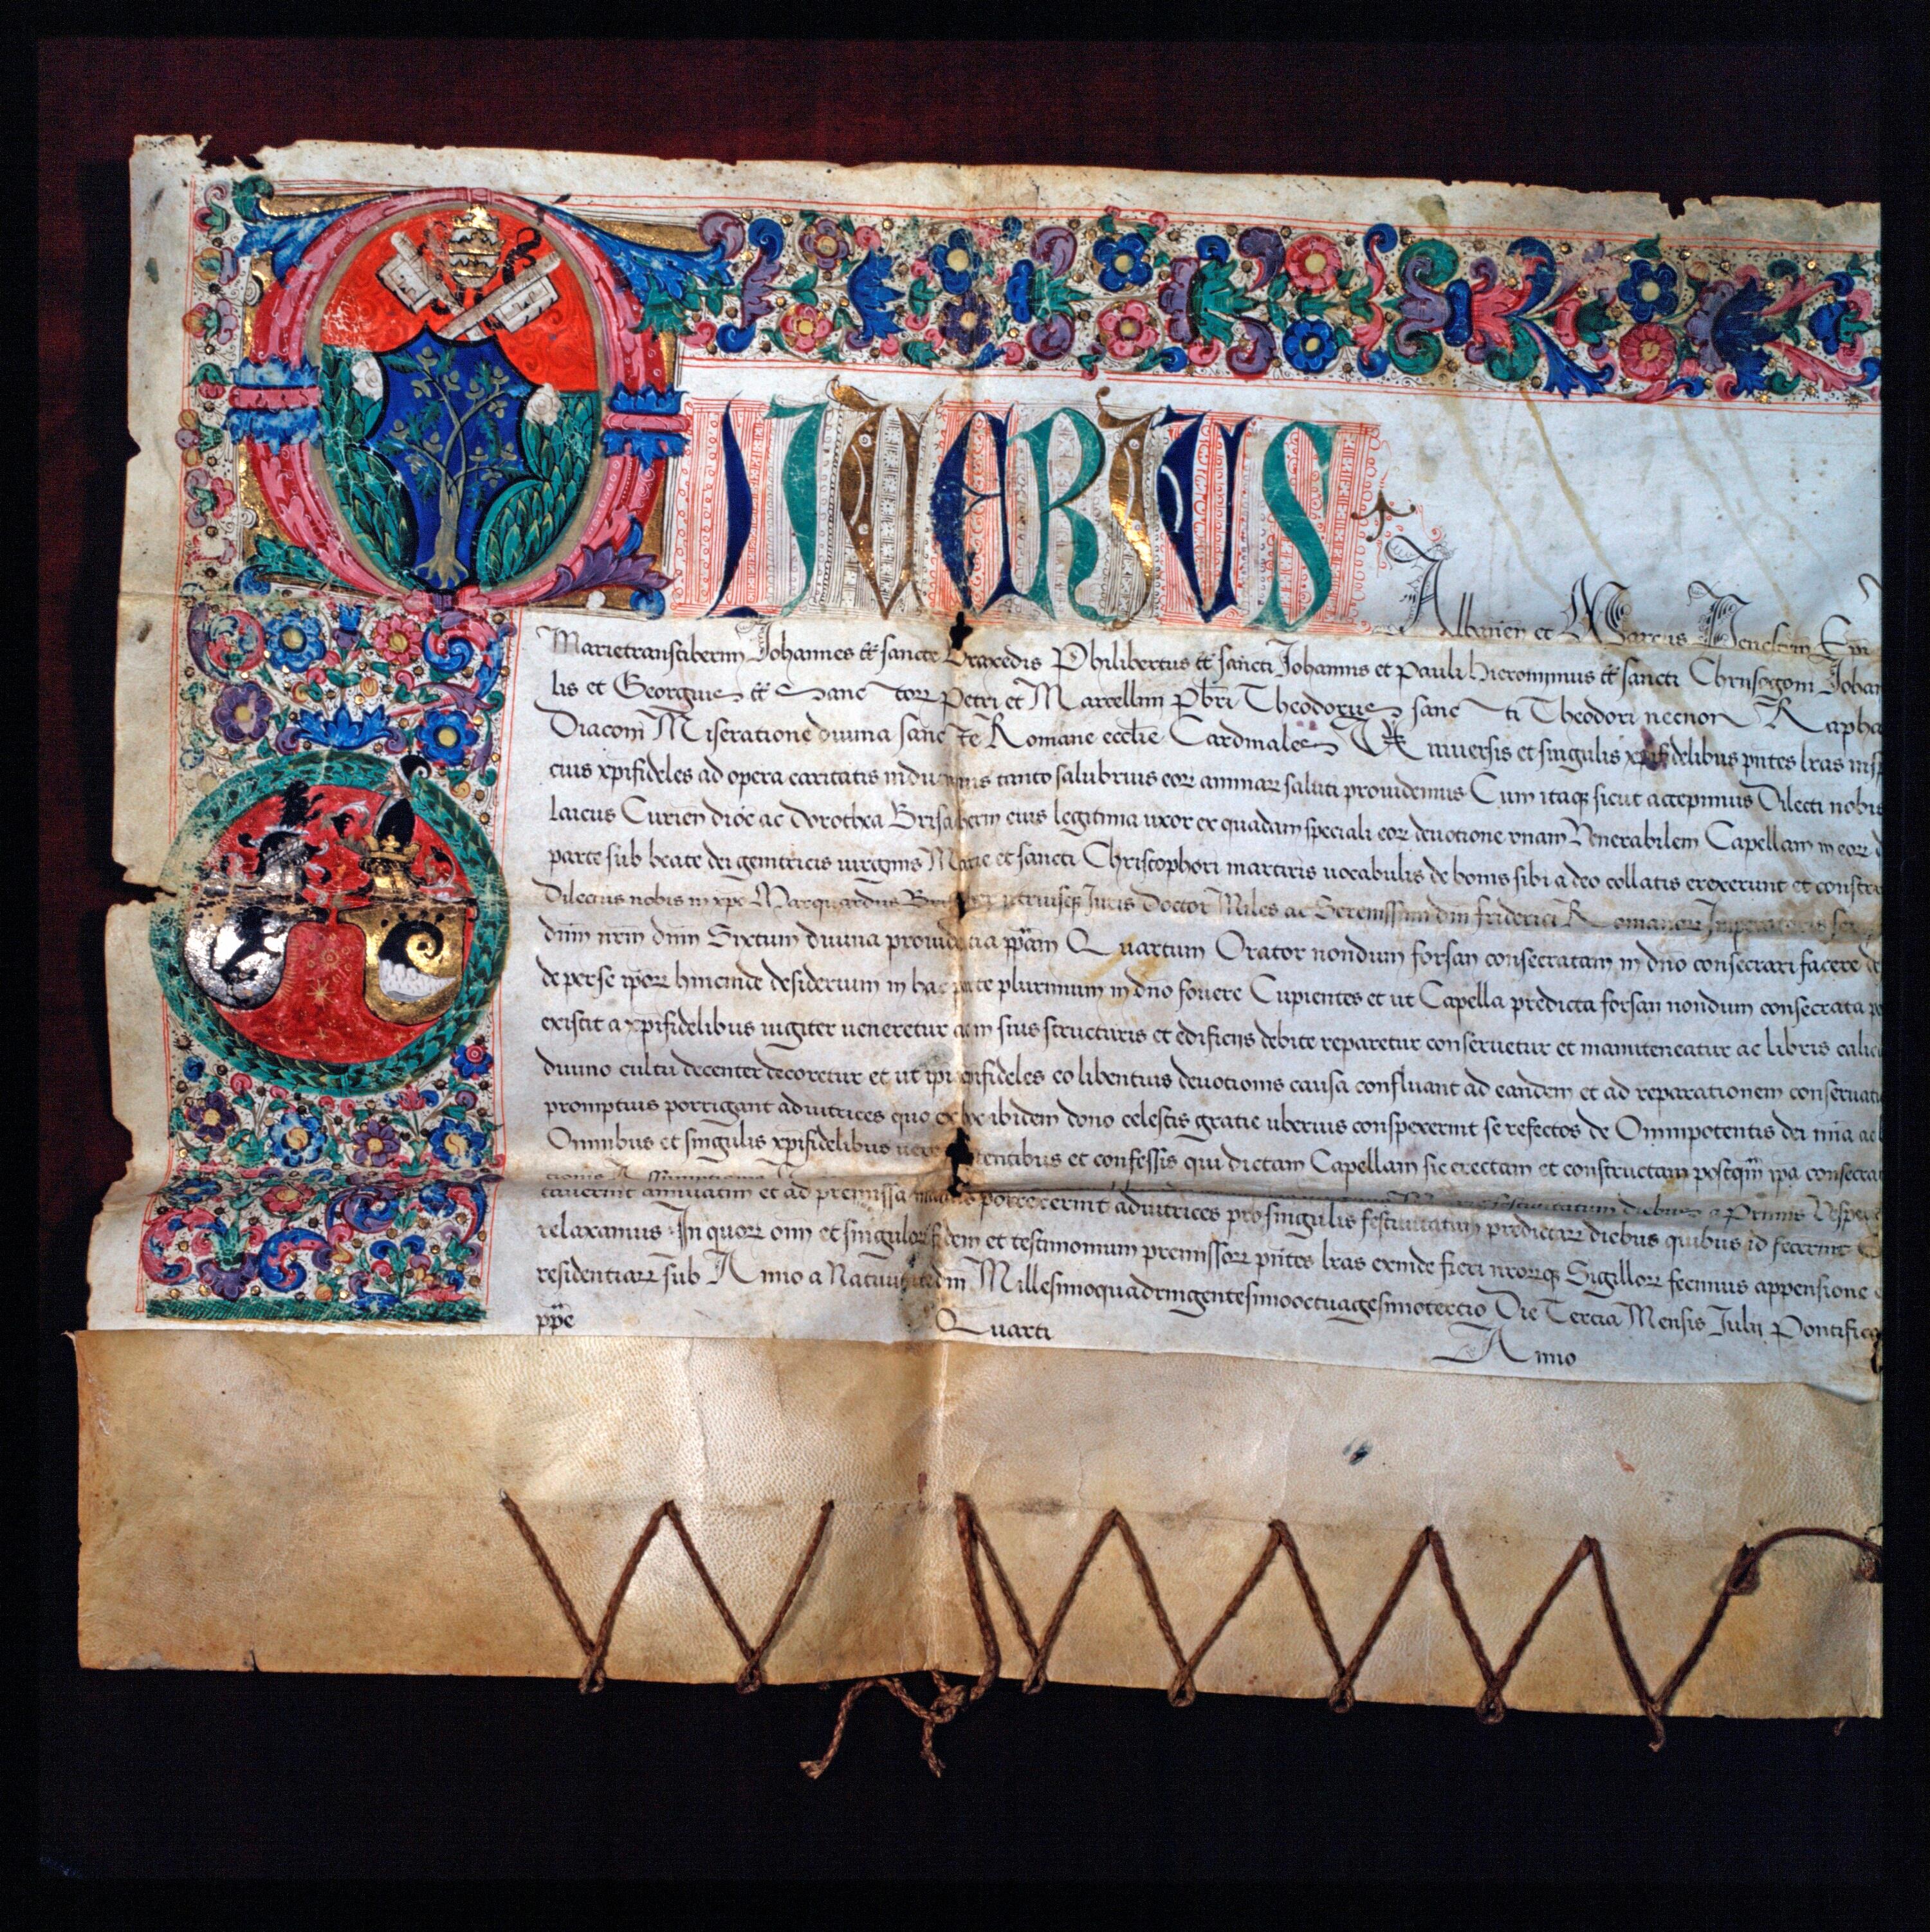 OLIVERIUS
Albanen et Marcus Penestrin Epi
Marietranstiberim Johannes tt sancte Praxedis Philibertus tt sancti Johannis et Pauli hieronimus tt sancti Chrisogoni Johan
lis et Georgius tt Sanctorum Petri et Marcellini Pbri Theodorus sancti Theodori necnon Rapha
Diaconi Miseratione diuina sancte Romane ecclie Cardinales Uniuersis et singulis xpifidelibus pntes lras insp
cius xpifideles ad opera caritatis tanto salubrius eor animar saluti prouidemus Cum itaq sicut accepimus Dilecti nobis
laicus Curien dioc ac Dorothea eius legitima uxor ex quadam speciali eor deuotione unam Venerabilem Capellam in eor
parte sub beate dei genitricis uirginis Marie et sancti Christophori martiris uocabulis de bonis sibi a deo collatis erexerunt et constru
Dilectus nobis in xpo Marquardus utriusq Juris Doctor Miles ac Serenissimi dni friderici Romanor Imperatoris
dnm nrm dnm Sixtum diuina prouidencia ppam Quartum Orator nondum forsan consecratam in dno consecrari facere
de per se ipor hmoi desiderium in hac parte plurimum in dno fouere Cupientes et ut Capella predicta forsan nondum consecrata
existit a xpifidelibus iugiter ueneretur ac in suis structuris et edificiis debite reparetur conseruetur et manuteneatur ac libris calic
diuino cultu decenter decoretur et ut ipi xpifideles eo libentius deuotionis causa confluant ad eandem et ad reparationem conseruati
promptius porrigant adiutrices quo ex hoc ibidem dono celestis gratie uberius conspexerint se refectos de Omnipotentis dei mia ac
Omnibus et singulis xpifidelibus uere penitentibus et confessis qui dictam Capellam sic erectam et constructam postqm ipa consecrat
festiuitatum diebus a Primis Vespe
annuatim et ad premissa manus porrexerint adiutrices pro singulis festiuitatum predictarr diebus quibus id fecerint
relaxamus In quorr omi et singulorr fidem et testimonium premissorr pntes lras exinde fieri nrorrq Sigillorr fecimus appensione
residentiarr sub Anno a Natiuitate dni Millesimoquadringentesimooctuagesimotertio Die Tercia Mensis Julij Pontific
ppe Quarti Anno